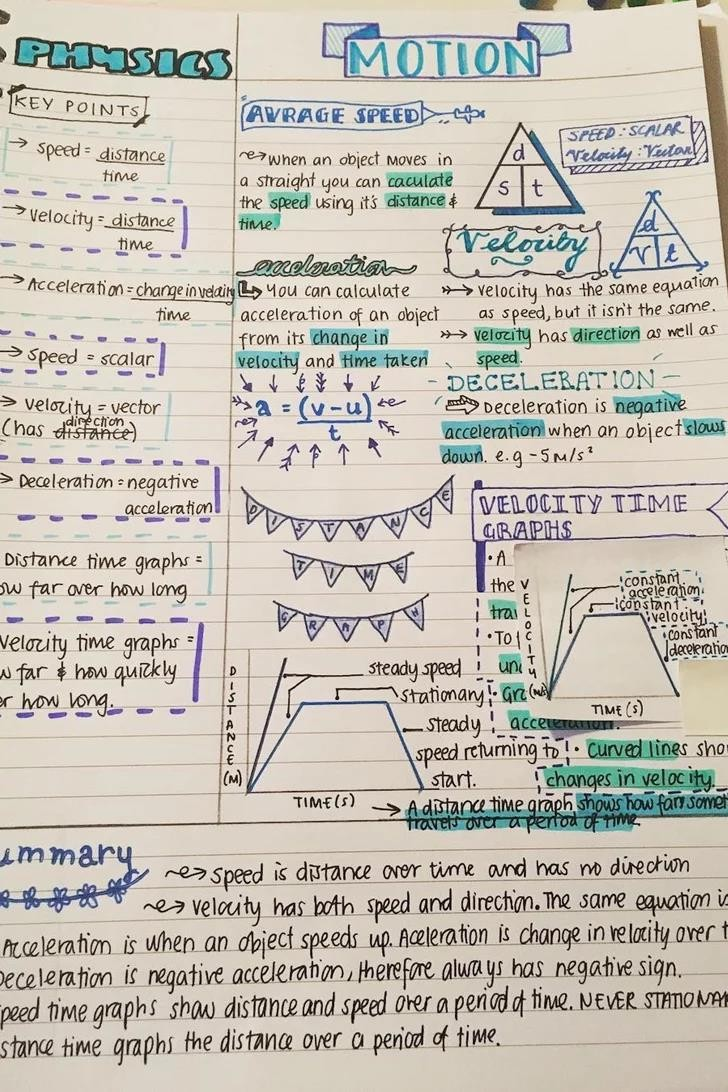 PHYSICS
MOTION
KEY POINTS
→ speed = distance
time
→ velocity = distance
time
→ Acceleration = change in velocity
time
→ speed = scalar
→ velocity = vector
direction
(has distance)
→ Deceleration = negative
acceleration
Distance time graphs =
ow far over how long
velocity time graphs =
w far & how quickly
er how long.
AVRAGE SPEED
when an object moves in
a straight you can caculate
the speed using it's distance &
time.
d
s t
SPEED : SCALAR
Velocity : Vector
acceleration
You can calculate
acceleration of an object
from its change in
velocity and time taken
a = (v-u)
t
Velocity
d
v t
velocity has the same equation
as speed, but it isn't the same.
velocity has direction as well as
speed.
DECELERATION
Deceleration is negative
acceleration when an object slows
down. e.g -5m/s²
DISTANCE
TIME
GRAPH
DISTANCE (M)
steady speed
stationary
steady
speed returning to
start.
TIME (S)
→ A distance time graph shows how far somet
travels over a period of time
VELOCITY TIME
GRAPHS
• A
the
tra
• To
un
• Gra
acceleration.
• Curved lines sho
changes in velocity
VELOCITY (M/
constant
acceleration
constant
velocity
constant
deceleratio
TIME (S)
ummary
speed is distance over time and has no direction
velocity has both speed and direction. The same equation is
Acceleration is when an object speeds up. Aceleration is change in velocity over t
Deceleration is negative acceleration, therefore always has negative sign.
peed time graphs show distance and speed over a period of time. NEVER STATIONAR
stance time graphs the distance over a period of time.